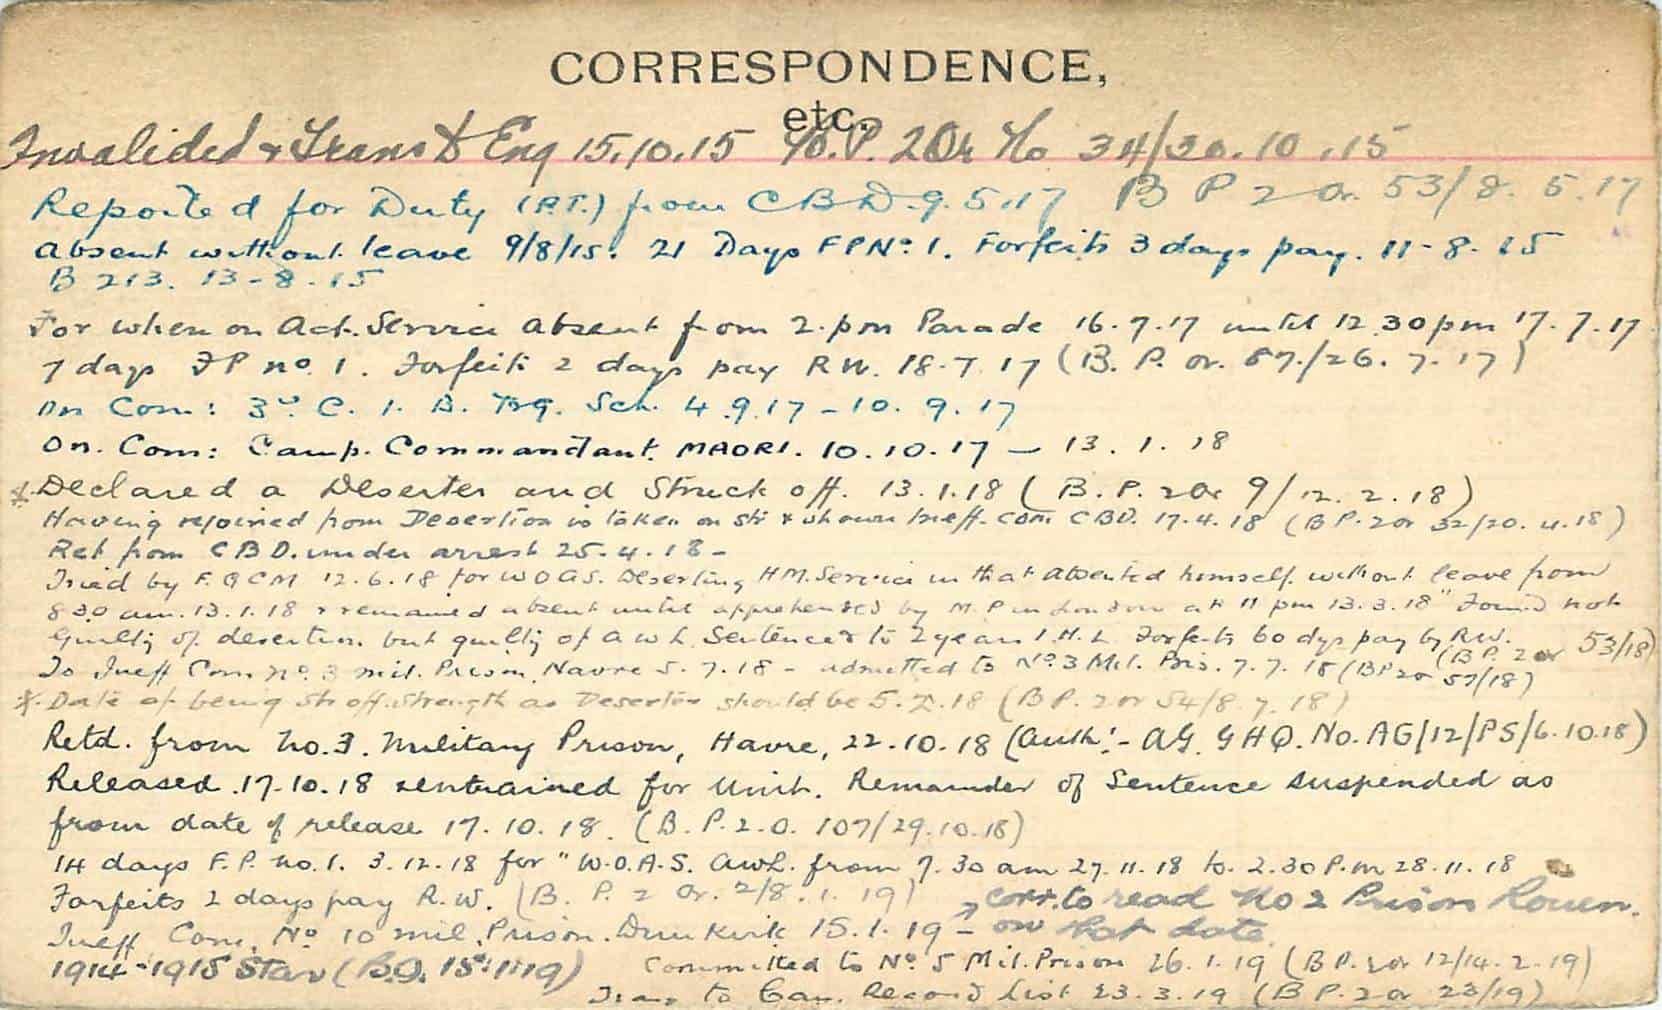 CORRESPONDENCE,
etc.
Invalided & Trans to Eng 15.10.15 B.P. 2 Or No 34/30.10.15
Reported for Duty (P.T.) from CBD. 9.5.17 B P 2 Or. 53/8. 5.17
Absent without leave 9/8/15. 21 Days F P No 1. Forfeits 3 days pay. 11-8.15
B 213. 13-8.15
For when on Act. Service absent from 2.pm Parade 16.7.17 until 12.30pm 17.7.17
7 days FP no. 1. Forfeits 2 days pay RW. 18.7.17 (B. P. or. 87/26. 7.17)
On Com: 3rd C. I. B. Trg. Sch. 4.9.17 - 10. 9. 17
On. Com: Camp. Commandant. MAORI. 10.10.17 - 13.1.18
*. Declared a Deserter and Struck off. 13.1.18 (B. P. 2 Or 9/12. 2.18)
Having rejoined from Desertion is taken on str & shown Ineff. Com CBD. 17.4.18 (B P. 2 or 32/20. 4.18)
Ret from C B D. under arrest 25.4.18-
Tried by F.G.C.M 12.6.18 for W O A S. Deserting H.M. Service in that absented himself without leave from
8.30 am. 13.1.18 & remained absent until apprehended by M.P in London at 11 pm 13.3.18" Found not
Guilty of desertion but guilty of a w L. Sentenced to 2 years I.H.L Forfeits 60 dys pay by R.W. (B P. 2 or 53/18)
To Ineff Com no. 3 mil. Prison Havre 5.7.18 - admitted to No. 3 Mil. Pris. 7.7.18 (BP 2 or 57/18)
*. Date of being str off strength as Deserter should be 5.2.18 (B P. 2 or 54/8.7.18)
Retd. from No.3. Military Prison, Havre, 22.10.18 (Auth:- AG. GHQ. No. AG/12/PS/6.10.18)
Released 17.10.18 & entrained for Unit. Remainder of Sentence suspended as
from date of release 17.10.18. (B. P. 2. O. 107/29.10.18)
14 days F.P. no.1. 3.12.18 for "W.O.A.S. AWL. from 7.30 am 27.11.18 to 2.30 P.m 28.11.18
Forfeits 2 days pay R.W. (B. P. 2 Or. 2/8.1.19) → corr. to read No 2 Prison Rouen.
Ineff Com. No 10 mil. Prison. Dunkirk 15.1.19 - on that date.
1914-1915 Star (B.O. 15.1.19) Committed to No 5 Mil. Prison 26.1.19 (B P. 2 or 12/14.2.19)
Trans to Can. Record List 23.3.19 (B P. 2 or 23/19)